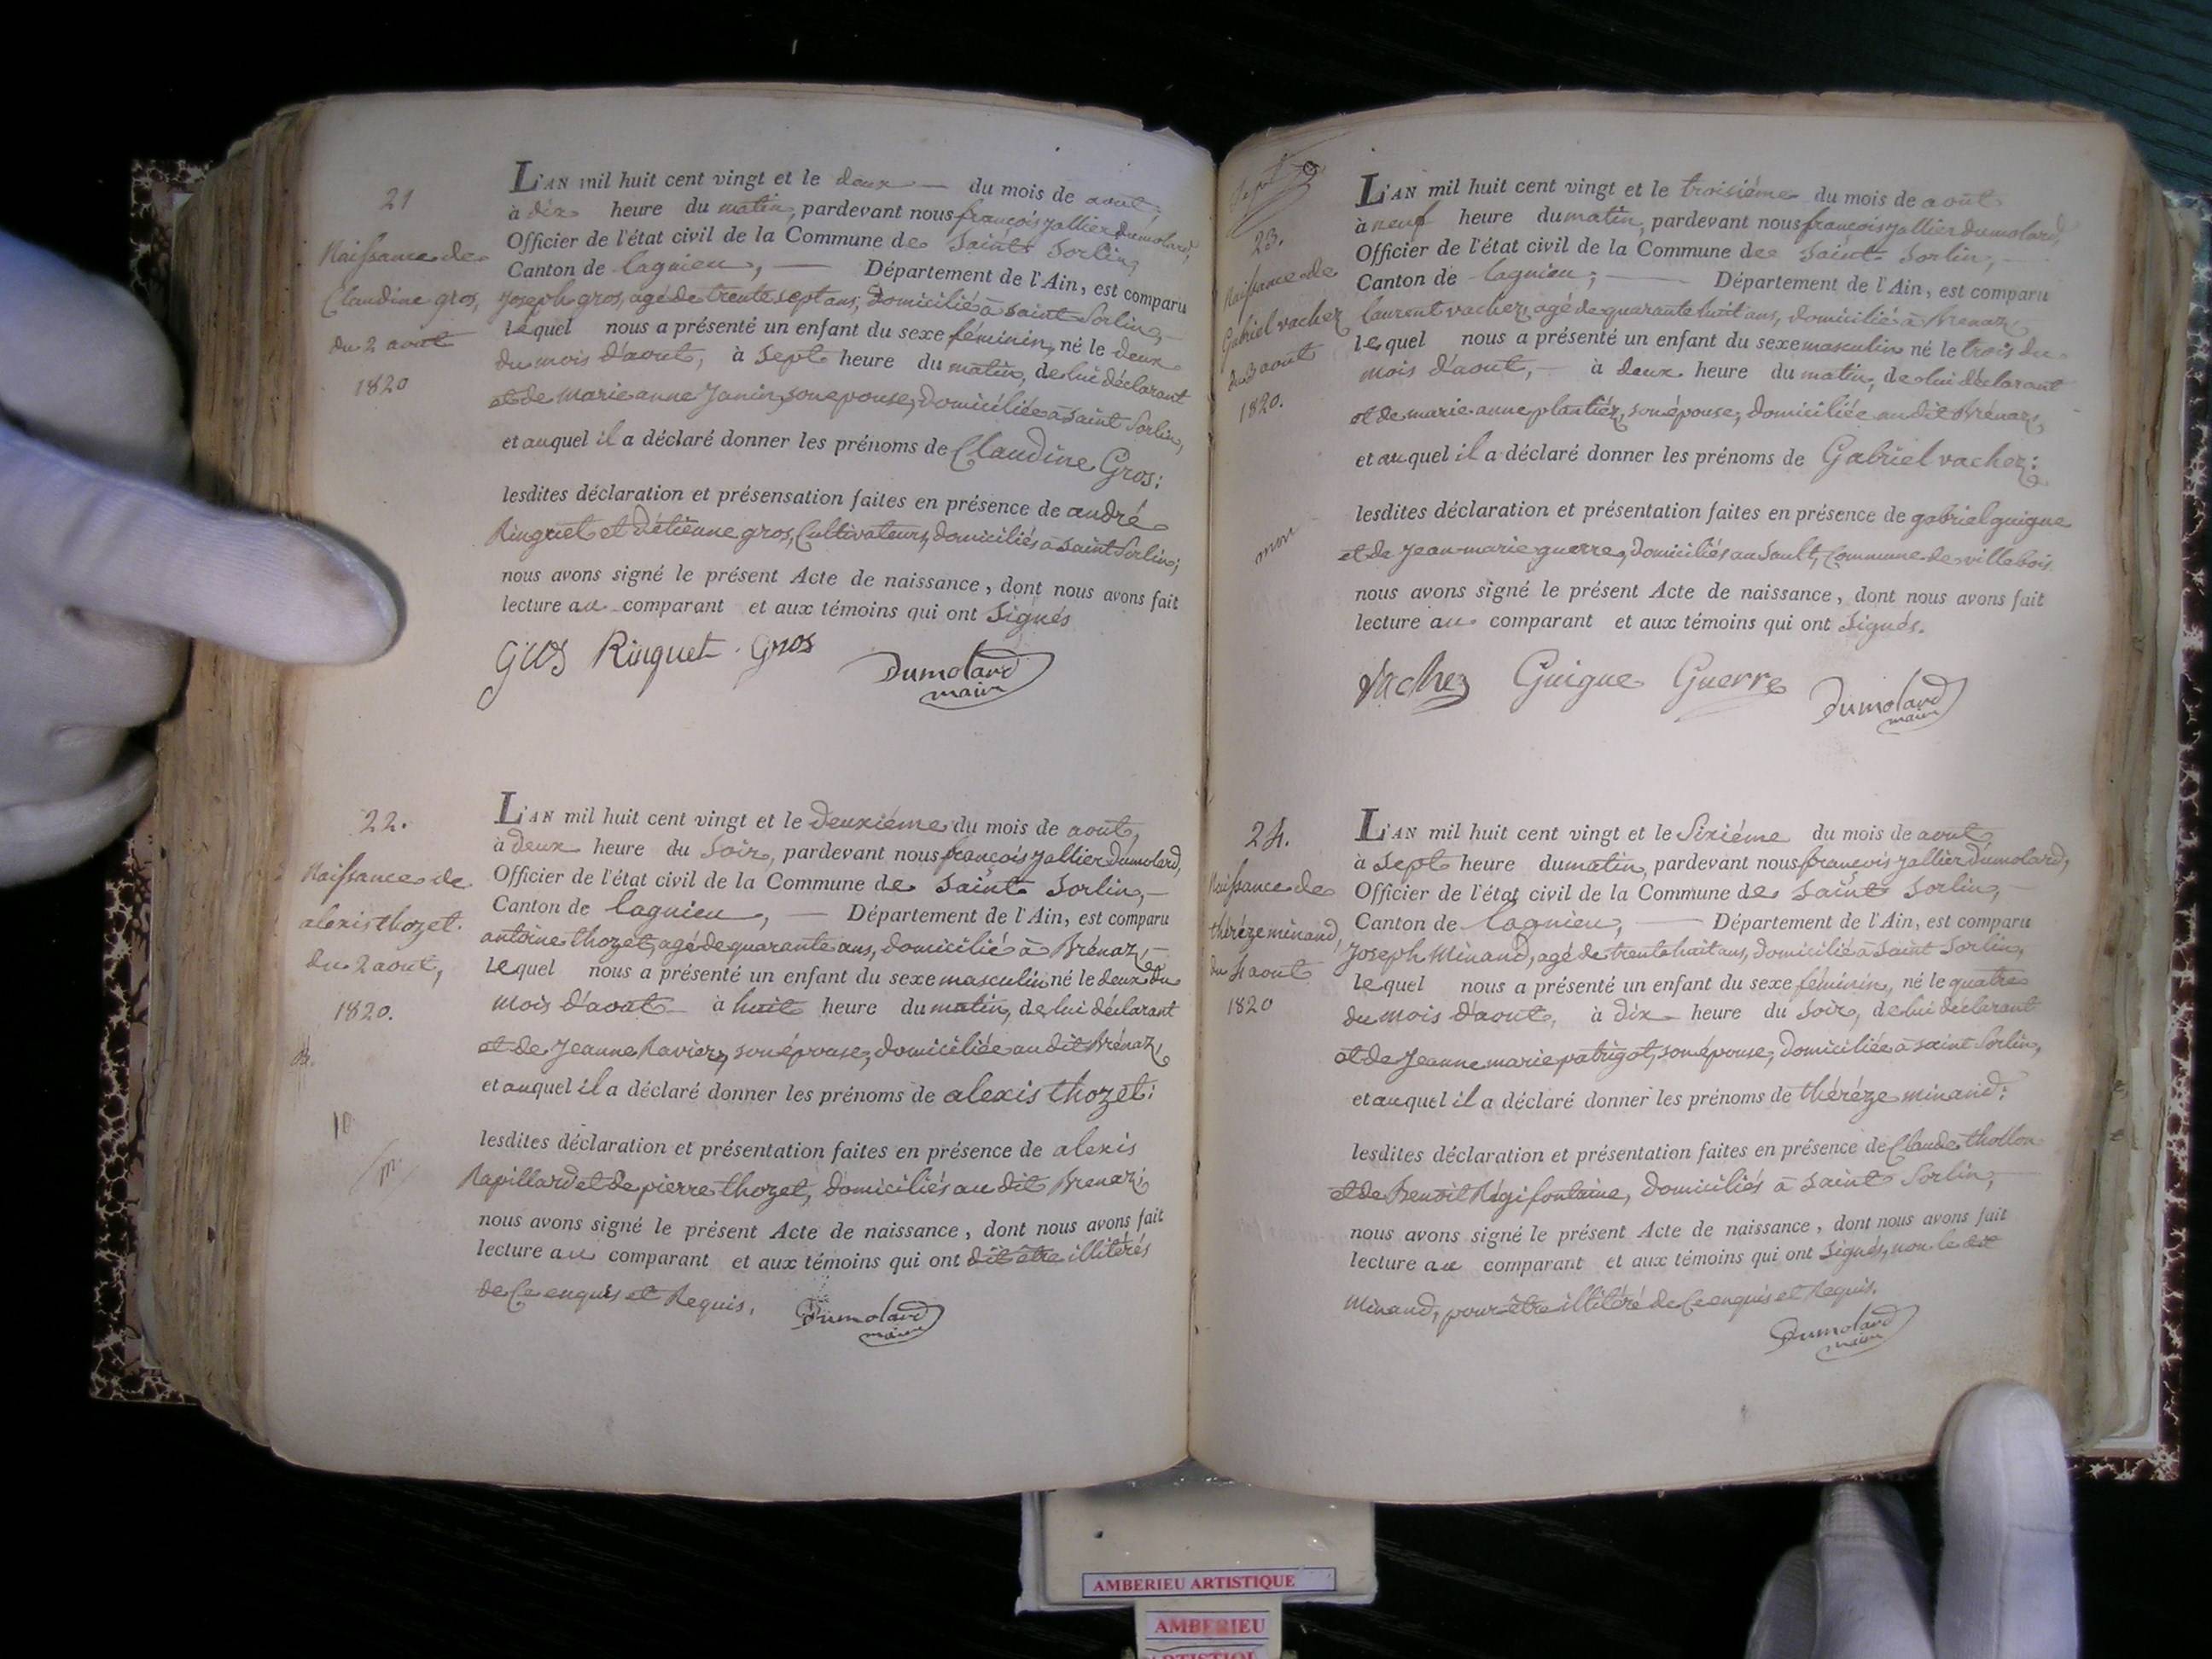 21
Naissance de
Claudine gros,
du 2 aout
1820
L'AN mil huit cent vingt et le deux — du mois de aout,
à dix heure du matin, pardevant nous françois jallier dumolard,
Officier de l'état civil de la Commune de Saint Sorlin,
Canton de lagnieu, — Département de l'Ain, est comparu
Joseph gros, agé de trente sept ans, domicilié à saint Sorlin,
lequel nous a présenté un enfant du sexe féminin, né le deux
du mois d'aout, à sept heure du matin, de lui déclarant
et de Marie anne Janin, son epouse, domiciliée à saint Sorlin,
et auquel il a déclaré donner les prénoms de Claudine Gros:
lesdites déclaration et présensation faites en présence de andré
Ringuet et d'étienne gros, Cultivateurs, domiciliés à saint Sorlin;
nous avons signé le présent Acte de naissance, dont nous avons fait
lecture au comparant et aux témoins qui ont signés
gros Ringuet gros Dumolard
maire
22.
Naissance de
alexis thozet.
du 2 aout,
1820.
L'AN mil huit cent vingt et le deuxiéme du mois de aout,
à deux heure du soir, pardevant nous françois jallier dumolard,
Officier de l'état civil de la Commune de Saint Sorlin, —
Canton de lagnieu, — Département de l'Ain, est comparu
antoine thozet, agé de quarante ans, domicilié à Brénaz, —
lequel nous a présenté un enfant du sexe masculin né le deux du
mois d'aout — à huit heure du matin, de lui déclarant
et de Jeanne Ravier, son épouse, domiciliée au dit Brénaz,
et auquel il a déclaré donner les prénoms de alexis thozet:
lesdites déclaration et présentation faites en présence de alexis
Rapillard et de pierre thozet, domiciliés au dit Brenaz;
nous avons signé le présent Acte de naissance, dont nous avons fait
lecture au comparant et aux témoins qui ont dit être illitérés
de Ce enquis et Requis. Dumolard
maire
23.
Naissance de
Gabriel vachez
du 3 aout
1820.
L'AN mil huit cent vingt et le troisiéme du mois de aout
à neuf heure du matin, pardevant nous françois jallier dumolard,
Officier de l'état civil de la Commune de Saint Sorlin, —
Canton de lagnieu; — Département de l'Ain, est comparu
laurent vachez, agé de quarante huit ans, domicilié à Brenaz,
lequel nous a présenté un enfant du sexe masculin né le trois du
mois d'aout, — à deux heure du matin, de lui déclarant
et de marie anne plantier, son épouse, domiciliée au dit Brénaz,
et auquel il a déclaré donner les prénoms de Gabriel vachez:
lesdites déclaration et présentation faites en présence de gabriel guigue
et de Jean marie guerre, domiciliés au Sault, Commune de villebois
nous avons signé le présent Acte de naissance, dont nous avons fait
lecture au comparant et aux témoins qui ont signés.
vachez Guigue Guerre Dumolard
maire
24.
Naissance de
thérèze minand,
du 4 aout
1820
L'AN mil huit cent vingt et le Sixiéme du mois de aout
à sept heure du matin, pardevant nous françois jallier dumolard,
Officier de l'état civil de la Commune de Saint Sorlin, —
Canton de lagnieu, — Département de l'Ain, est comparu
Joseph Minand, agé de trente huit ans, domicilié à saint Sorlin,
lequel nous a présenté un enfant du sexe féminin, né le quatre
du mois d'aout, à dix heure du soir, de lui déclarant
et de Jeanne marie patrigot, son épouse, domiciliée à saint Sorlin,
et auquel il a déclaré donner les prénoms de thérèze minand:
lesdites déclaration et présentation faites en présence de Claude thollon
et de Benoit Régifontaine, domiciliés à saint Sorlin, —
nous avons signé le présent Acte de naissance, dont nous avons fait
lecture au comparant et aux témoins qui ont signés, non le dit
Minand, pour être illitéré de Ce enquis et Requis.
Dumolard
maire
AMBERIEU ARTISTIQUE
AMBERIEU
ARTISTIQUE